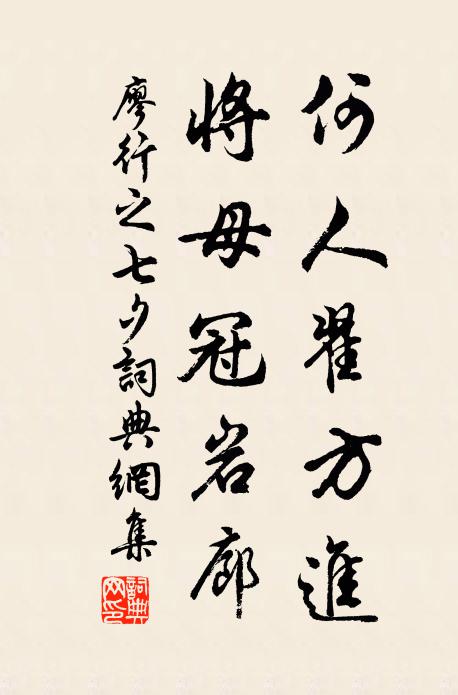 何人翟方進
將母冠岩廊
廖行之七夕詞典網集
詞典网印